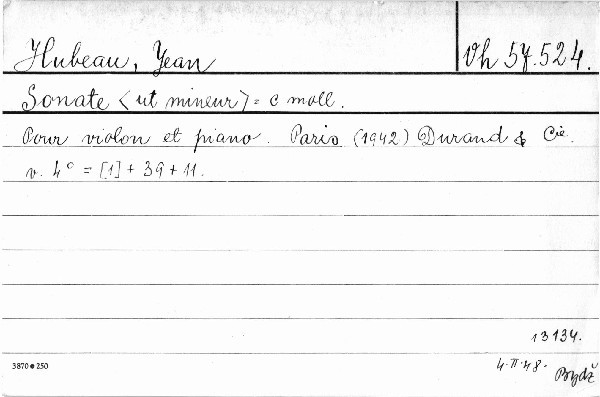 Hubeau, Jean Vh 57.524.
Sonate <ut mineur> = c moll.
Pour violon et piano. Paris (1942) Durand & Cie.
v. 4° = [1] + 39 + 11.
13134.
3870 ● 250 4·II·48.
Brdž